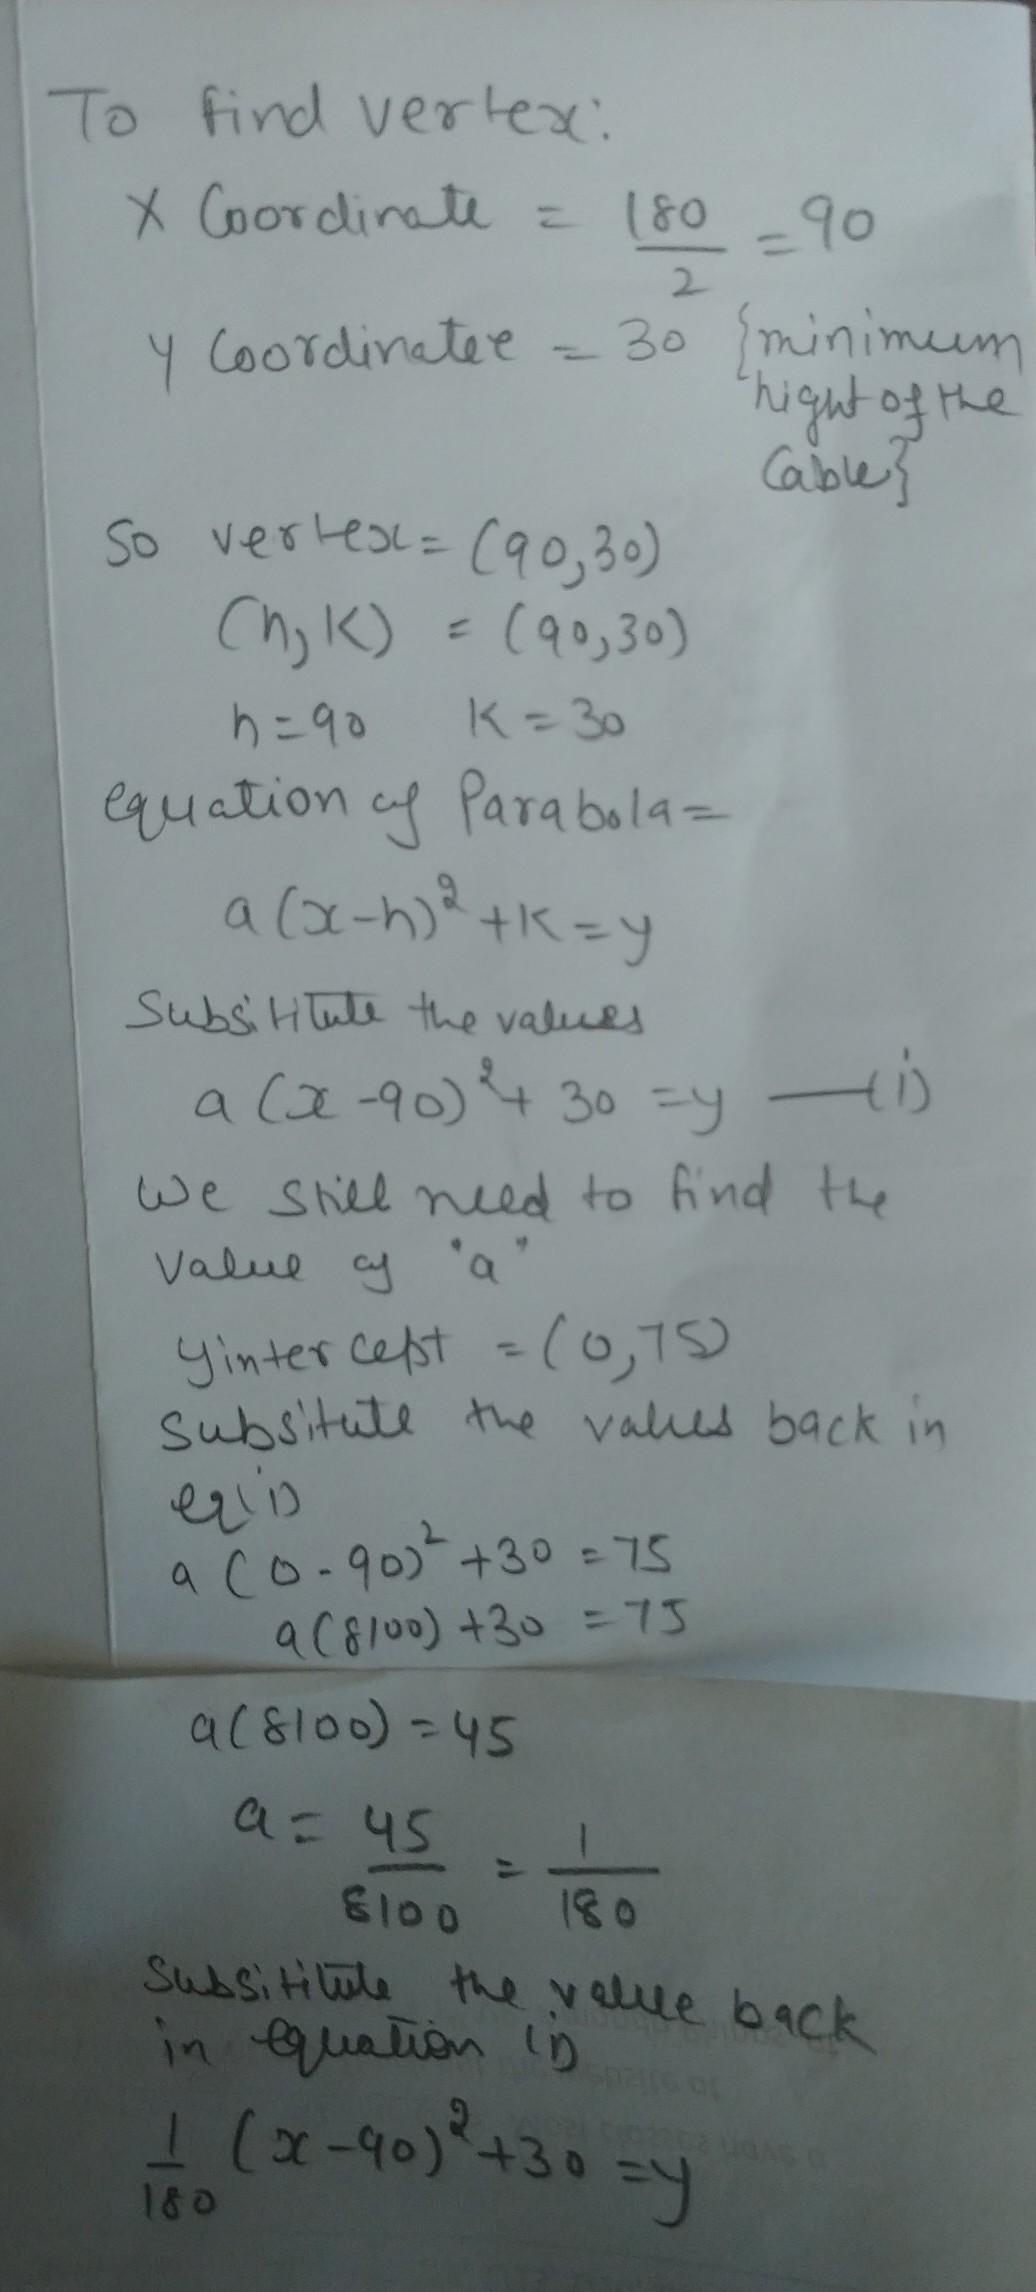 To find vertex:
X Coordinate = 180/2 = 90
y Coordinatee = 30 {minimum
hight of the
Cable}
So vertex = (90,30)
(h, K) = (90,30)
h = 90 K = 30
equation of Parabola =
a(x-h)² + K = y
Subsititute the values
a(x-90)² + 30 = y —(i)
We still need to find the
value of "a"
y intercept = (0,75)
Subsitute the values back in
eq(i)
a(0-90)² + 30 = 75
a(8100) + 30 = 75
a(8100) = 45
a = 45/8100 = 1/180
Subsititute the value back
in equation (i)
1/180 (x-90)² + 30 = y